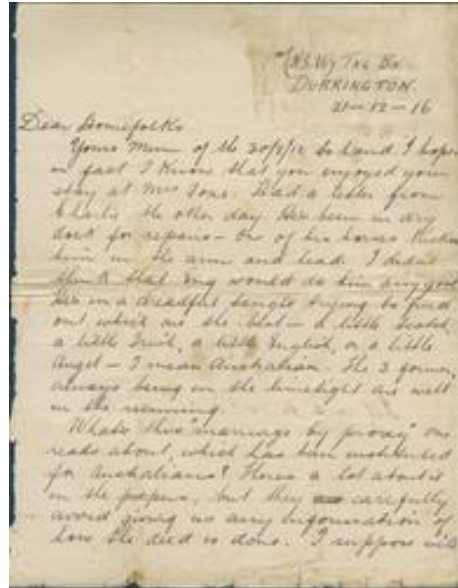 Trg Bn
DURRINGTON.
21-12-16
Dear Homefolks
Yours Mum of the to hand I hope
in fact I know that you enjoyed your
stay at Mrs Had a letter from
Charlie the other day Hes been in dry
dock for repairs - One of his horses kicked
him in the arm and head. I didn't
think that Eng would do him any good
Hes in a dreadful tangle trying to find
out which are the best - a little Scotch,
a little Irish, a little English, or a little
Angel - I mean Australian. The 3 former,
always being in the limelight are well
in the running.
Whats this "marriage by proxy" one
reads about, which has been instituted
for Australians? Theres a lot about it
in the papers, but they carefully
avoid giving us any information of
how the deed is done. I suppose